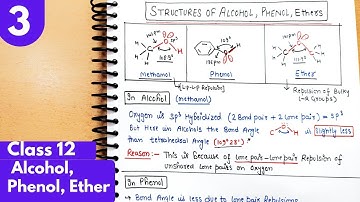 3
STRUCTURES OF ALCOHOL, PHENOL, Ethers
142pm
96pm
H
108.9°
Methanol
109°
136pm
H
Phenol
141pm
Ether
(l.p-l.p Repulsion)
Repulsion of Bulky
(-R Groups)
In Alcohol (methanol)
Oxygen is SP³ Hybridized (2 Bond pair + 2 lone pair) = SP³
But Here in Alcohols the Bond Angle C O H is slightly less
than tetrahedral Angle (109°28')
Reason:- This is Because of lone pair-lone pair Repulsion of
unshared lone pairs on Oxygen
In Phenol
→ Bond Angle is less due to lone pair Repulsions
Class 12
Alcohol,
Phenol, Ether